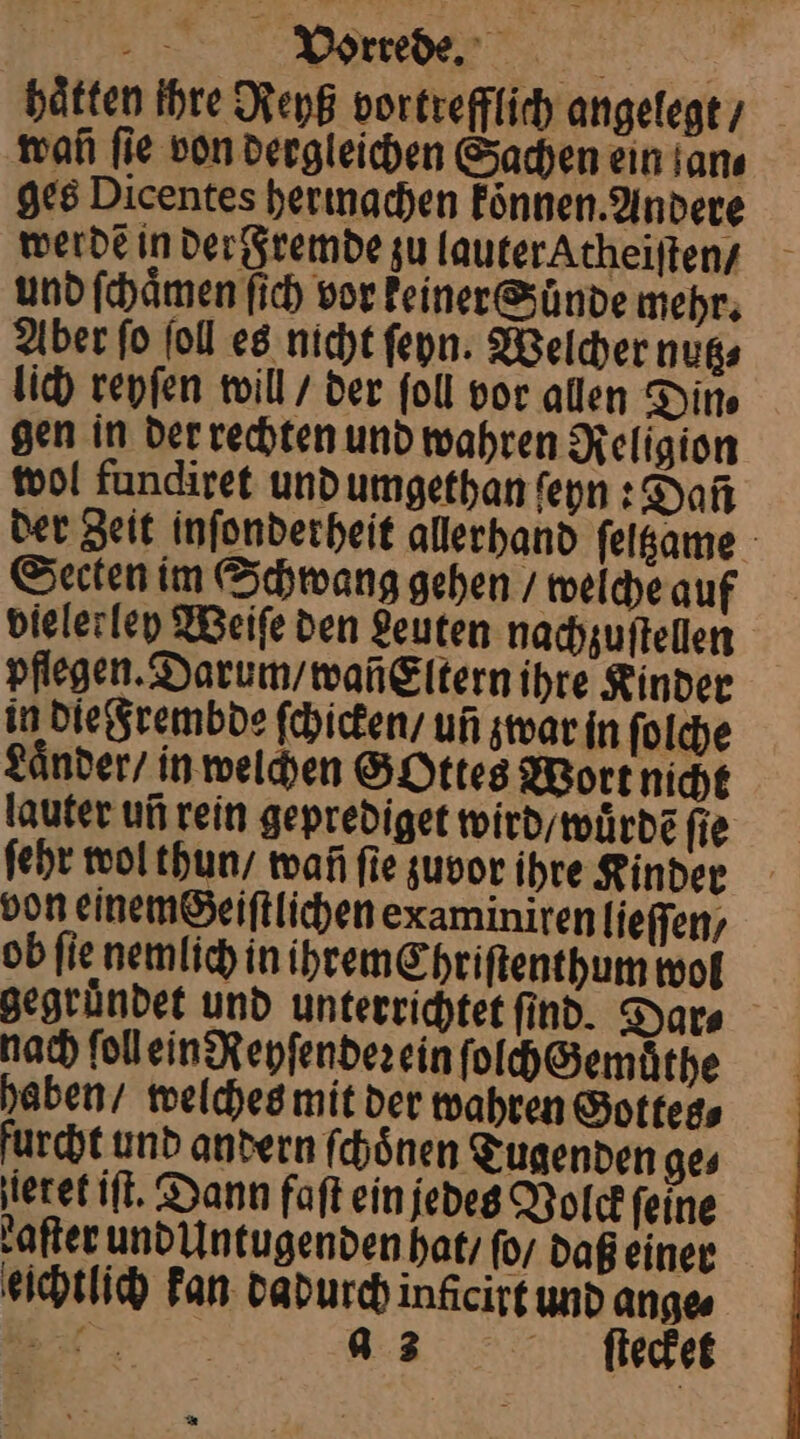 Vorrede.
haͤtten ihre Reyß vortrefflich angelegt /
wañ ſie von dergleichen Sachen ein lan⸗
ges Dicentes hermachen koͤnnen. Andere
werdẽ in der Fremde zu lauter Atheiſten /
und ſchaͤmen ſich vor keiner Suͤnde mehr.
Aber ſo ſoll es nicht ſeyn. Welcher nutz⸗
lich reyſen will / der ſoll vor allen Din⸗
gen in der rechten und wahren Religion
wol fundiret und umgethan ſeyn : Dañ
der Zeit inſonderheit allerhand ſeltzame
Secten im Schwang gehen / welche auf
vielerley Weiſe den Leuten nachzuſtellen
pflegen. Darum / wañ Eltern ihre Kinder
in die Frembde ſchicken / uñ zwar in ſolche
Laͤnder / in welchen GOttes Wort nicht
lauter uñ rein geprediget wird / wuͤrdẽ ſie
ſehr wol thun / wañ ſie zuvor ihre Kinder
von einem Geiſtlichen examiniren lieſſen /
ob ſie nemlich in ihrem Chriſtenthum wol
gegruͤndet und unterrichtet ſind. Dar⸗
nach ſoll ein Reyſendeꝛ ein ſolch Gemuͤthe
haben / welches mit der wahren Gottes⸗
furcht und andern ſchoͤnen Tugenden ge⸗
zieret iſt. Dann faſt ein jedes Volck ſeine
Laſter und Untugenden hat / ſo / daß einer
leichtlich kan dadurch inficirt und ange⸗
a 3 ſtecket